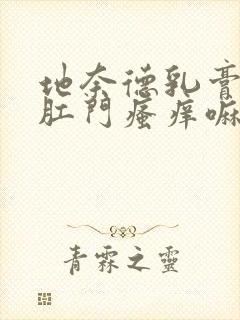 地奈德乳膏
肛門瘙痒嘛
青霖之靈